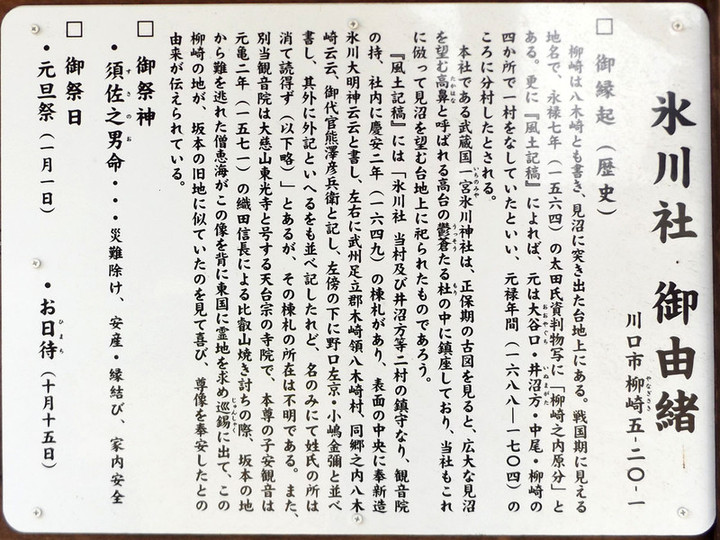 氷川社 御由緒
川口市柳崎五-二〇-一
□ 御縁起（歴史）
柳崎は八木崎とも書き、見沼に突き出た台地上にある。戦国期に見える
地名で、永禄七年（一五六四）の太田氏資判物写に「柳崎之内原分」と
ある。更に『風土記稿』によれば、元は大谷口・井沼方・中尾・柳崎の
四か所で一村をなしていたといい、元禄年間（一六八八―一七〇四）の
ころに分村したとされる。
本社である武蔵国一宮氷川神社は、正保期の古図を見ると、広大な見沼
を望む高鼻と呼ばれる高台の鬱蒼たる杜の中に鎮座しており、当社もこれ
に倣って見沼を望む台地上に祀られたものであろう。
『風土記稿』には「氷川社 当村及び井沼方等二村の鎮守なり、観音院
の持、社内に慶安二年（一六四九）の棟札があり、表面の中央に奉新造
氷川大明神云云と書し、左右に武州足立郡木崎領八木崎村、同郷之内八木
崎云云、御代官熊澤彦兵衛と記し、左傍の下に野口左京・小嶋金彌と並べ
書し、其外に外記といへるをも並べ記したれど、名のみにて姓氏の所は
消て読得ず（以下略）」とあるが、その棟札の所在は不明である。また、
別当観音院は大慈山東光寺と号する天台宗の寺院で、本尊の子安観音は
元亀二年（一五七一）の織田信長による比叡山焼き討ちの際、坂本の地
から難を逃れた僧恵海がこの像を背に東国に霊地を求め巡錫に出て、この
柳崎の地が、坂本の旧地に似ていたのを見て喜び、尊像を奉安したとの
由来が伝えられている。
□ 御祭神
・須佐之男命・・・災難除け、安産・縁結び、家内安全
□ 御祭日
・元旦祭（一月一日）　・お日待（十月十五日）